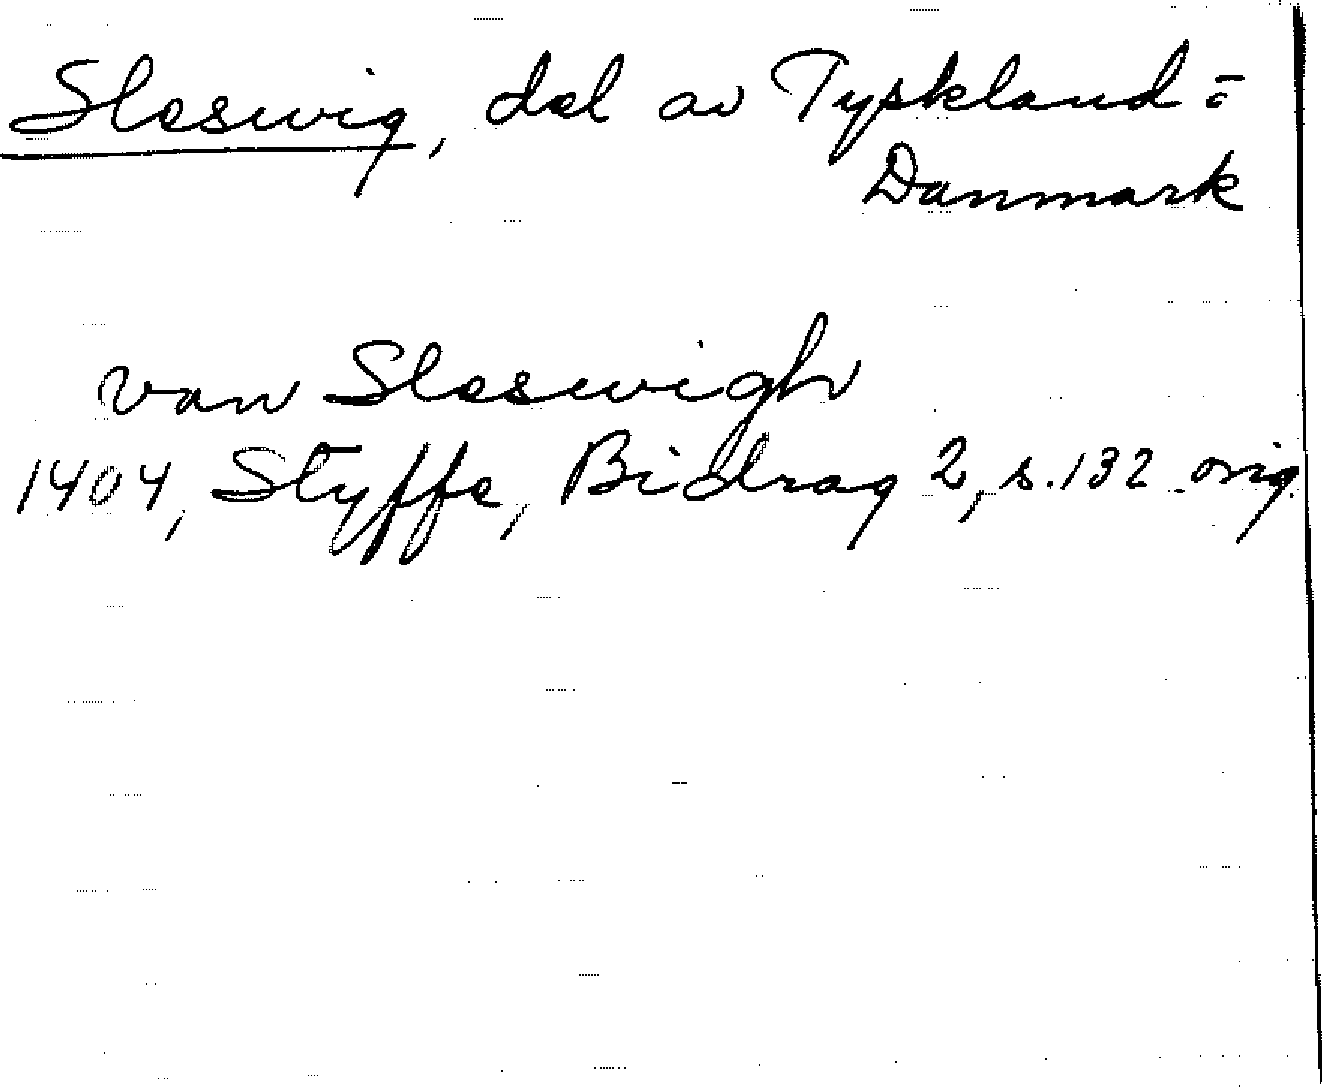 Sleswig, del av Tyskland=
Danmark
van Sleswigh
1404, Styffe, Bidrag 2, s. 132 orig.